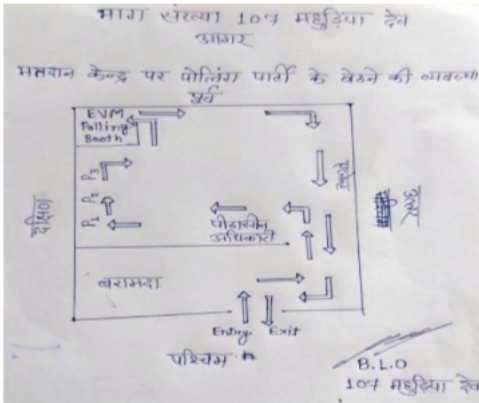 भाग संख्या 107 महुड़िया देव
आगर
मतदान केन्द्र पर पोलिंग पार्टी के बैठने की व्यवस्था
पूर्व
EVM
Polling
Booth
P3
P2
P1
दक्षिण
उत्तर
पीठासीन
अधिकारी
बरामदा
Entry Exit
पश्चिम
B.L.O
107 महुड़िया देव